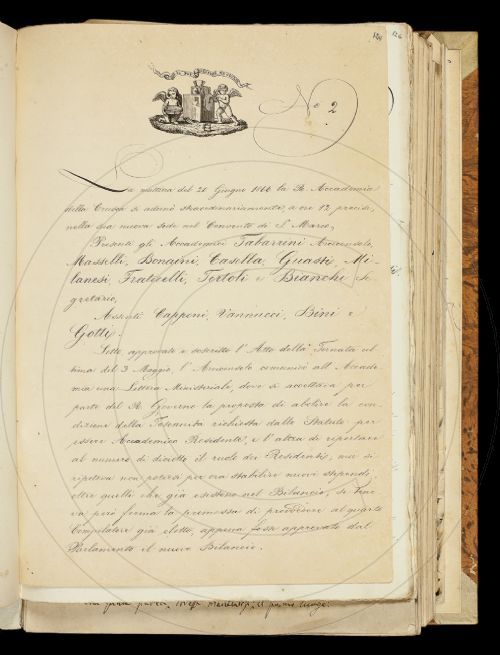 126
No 2
La mattina del 20 Giugno 1866 la R. Accademia
della Crusca si adunò straordinariamente, a ore 12 precise,
nella sua nuova sede nel Convento di S. Marco,
Presenti gli Accademici Tabarrini Arciconsolo,
Masselli, Bonaini, Casella, Guasti, Mi-
lanesi, Fraticelli, Tortoli e Bianchi Se-
gretario,
Assenti Capponi, Vannucci, Bini e
Gotti.
Letto, approvato e soscritto l'Atto della Tornata ul-
tima del 3 Maggio, l'Arciconsolo comunicò all'Accade-
mia una Lettera Ministeriale, dove si accettava per
parte del R. Governo la proposta di abolire la con-
dizione della Toscanità richiesta dallo Statuto per
essere Accademico Residente, e l'altra di riportare
al numero di diciotto il ruolo dei Residenti, ma si
ripeteva non potersi per ora stabilire nuovi stipendi,
oltre quelli che già esistono nel Bilancio, Si tene-
va però ferma la promessa di provvedere al quarto
Compilatore già eletto, appena fosse approvato dal
Parlamento il nuovo Bilancio.